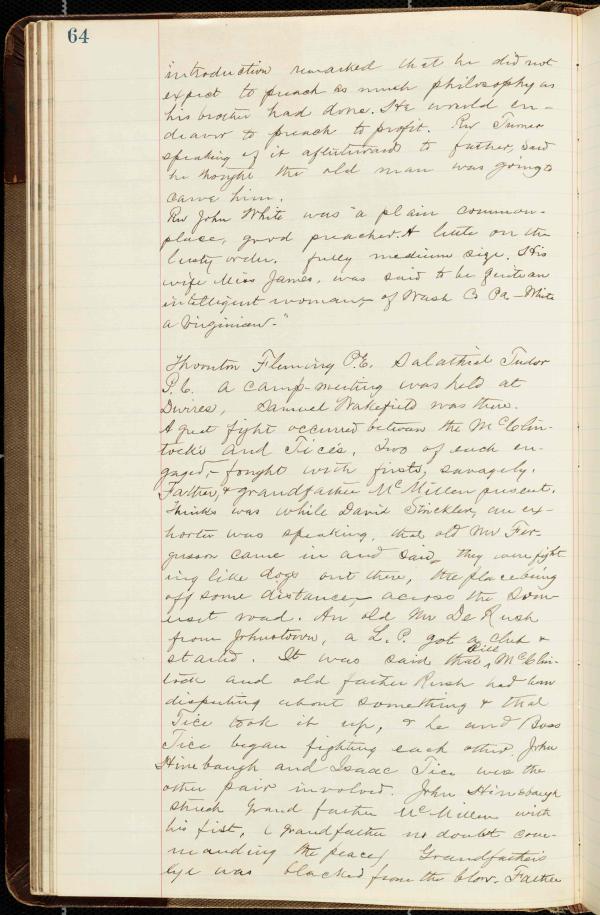 64
introduction remarked that he did not
expect to preach as much philosophy as
his brother had done. He would en-
deavor to preach to profit. Rev Turner
speaking of it afterward to father, said
he thought the old man was going to
carve him.
Rev John White was "a plain common-
place, good preacher. A little on the
lusty order. fully medium size. His
wife Miss James, was said to be quite an
intelligent woman, of Wash Co Pa - White
a Virginian."
Thornton Fleming P.E. Salathiel Tudor
P.C. A camp-meeting was held at
Samuel Wakefield was there.
A great fight occurred between the McClin-
tocks and Tices, two of each en-
gaged, - fought with fists, savagely.
Father, & grandfather McMillen present.
Thinks was while David Strickler, an ex-
horter was speaking, that old Mr Fer-
gusson came in and said they were fight
ing like dogs out there, the place being
off some distance, across the Som-
erset road. An old Mr De Rush
from Johnstown, a L. P. got a club &
started. It was said that Bill McClin-
tock and old father Rush had been
disputing about something & that
Tice took it up, & he and Ross
Tice began fighting each other. John
Hinebaugh and Isaac Tice was the
other pair involved. John Hinebaugh
struck Grand father McMillen with
his fist, ( grandfather no doubt com-
manding the peace) Grandfathers
eye was blacked from the blow. Father